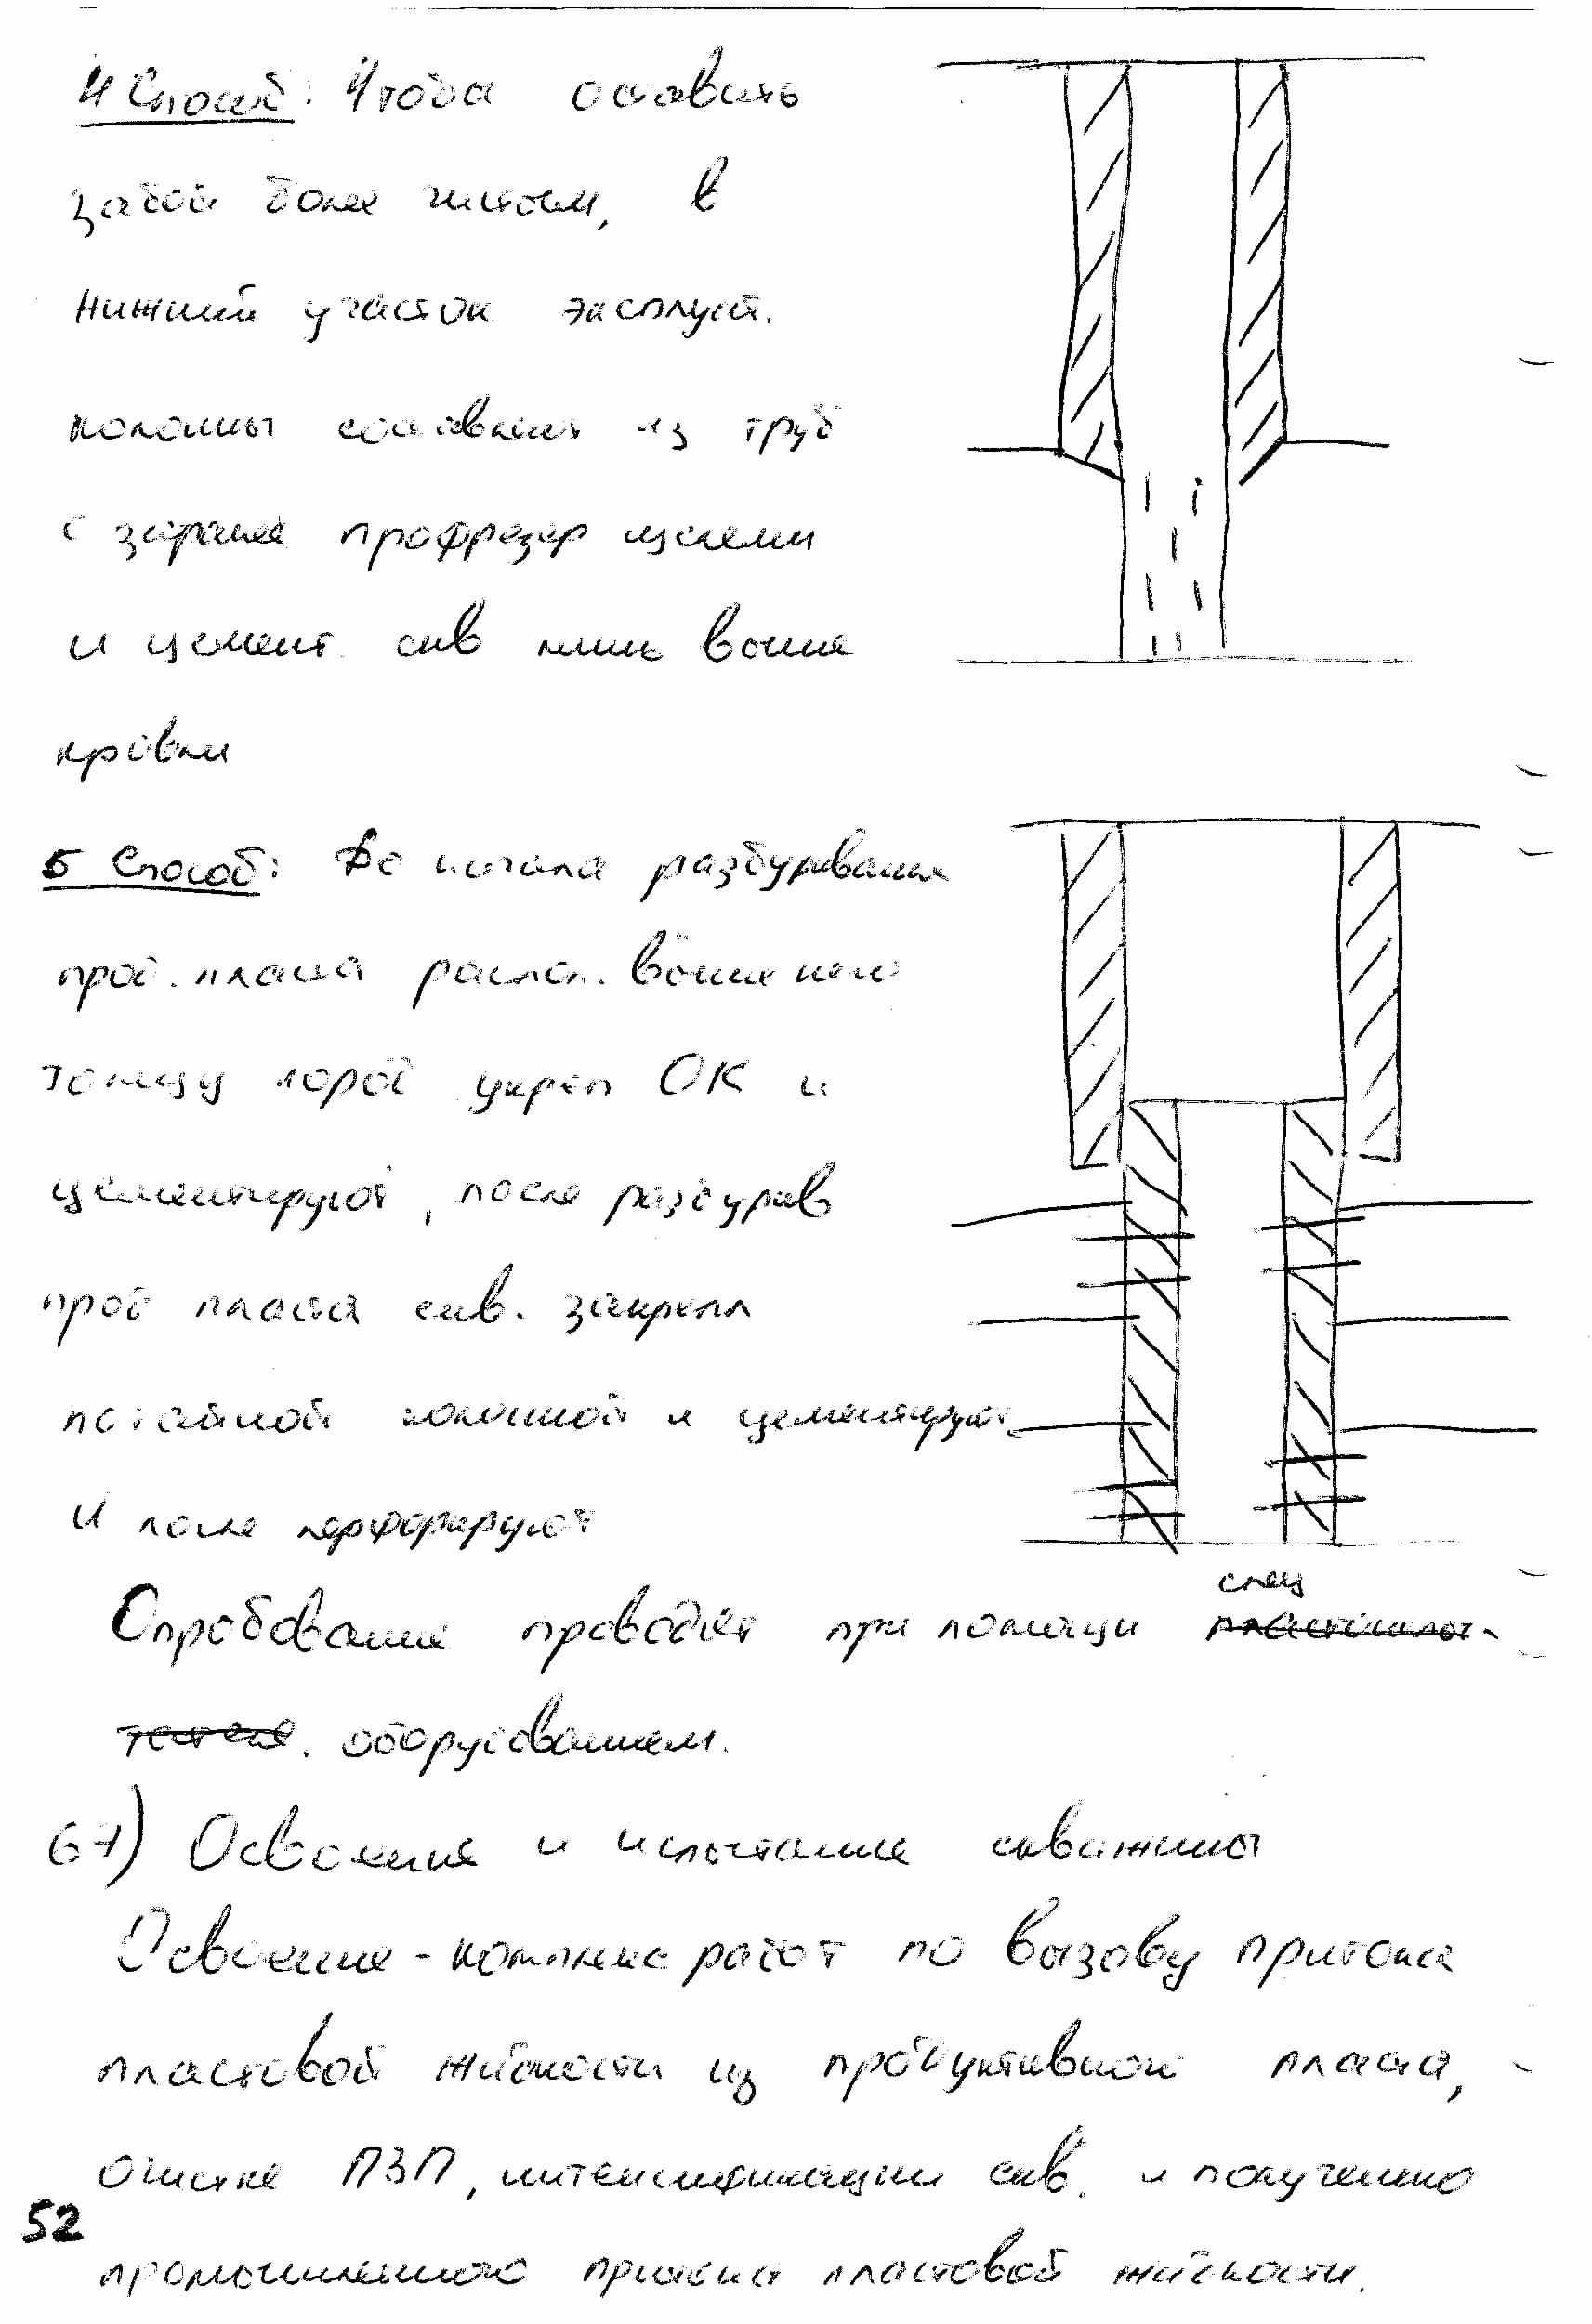 4 Способ: Чтобы оставить
забой более чистым, в
нижний участок эксплуат.
колонны составляют из труб
с заранее профрезер щелями
и цемент. скв лишь выше
кровли
5 Способ: До начала разбуривания
прод. пласта распол. выше него
толщу пород укреп ОК и
цементируют, после разбурив
прод пласта скв. закрепл
потайной колонной и цементируют
И после перфорируют
спец
Опробование проводят при помощи пластоиспы-
тателя. оборудованием.
67) Освоения и испытание скважины
Освоение - комплекс работ по вызову притока
пластовой жидкости из продуктивной пласта,
очистке ПЗП, интенсификации скв. и получению
промышленного притока пластовой жидкости.
52